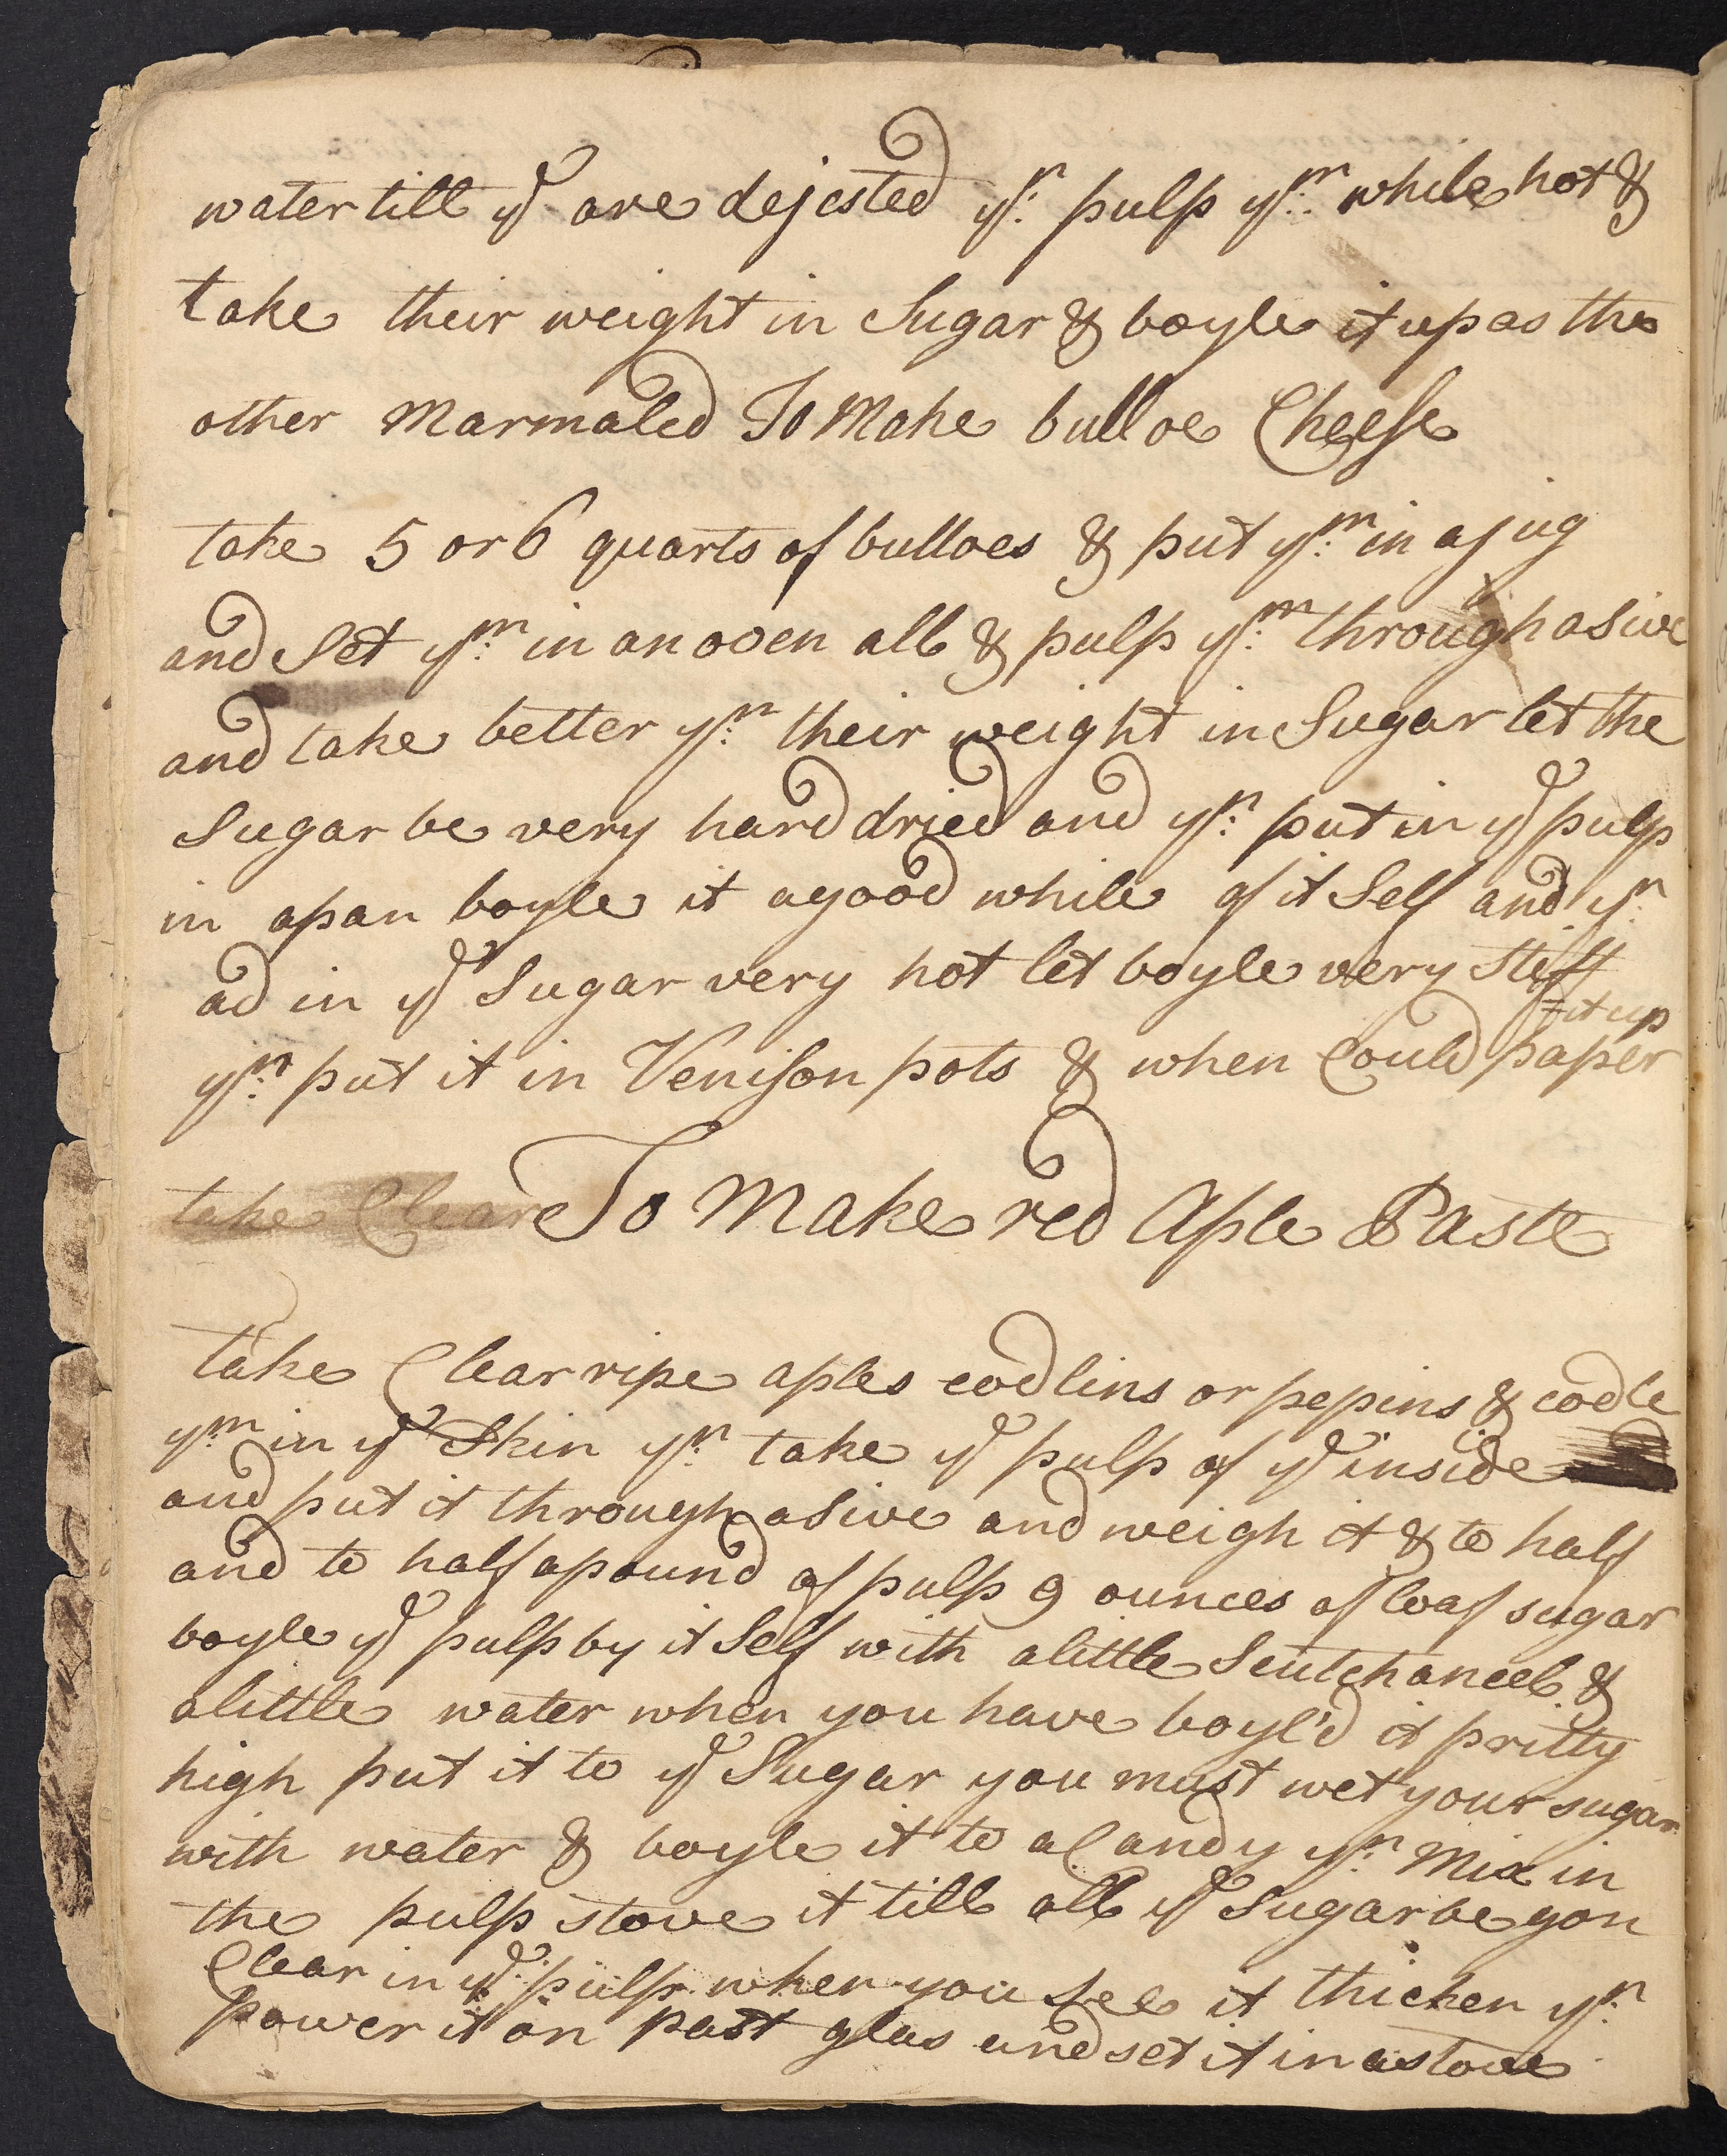 water till ye are dejested yn: pulp ym: while hot &
take their weight in Sugar & boyle it up as the
other Marmaled To Make bulloe Cheese
take 5 or 6 quarts of bulloes & put ym: in a jug
and Set ym: in an oven all & pulp ym: through a sive
and take better yn: their weight in Sugar let the
Sugar be very hard dried and yn: put in ye pulp
in a pan boyle it a good while of it Self and yn:
ad in ye Sugar very hot let boyle very stiff
=it up
yn: put it in Venison pots & when Could paper
take Clear To Make red Aple Paste
take Clear ripe aples codlins or pepins & codle
ym: in ye Skin yn: take ye pulp of ye inside
and put it through a sive and weigh it & to half
and to half a pound of pulp 9 ounces of loaf sugar
boyle ye pulp by it Self with a little Scutchaneel &
a little water when you have boyl'd it pritty
high put it to ye Sugar you must wet your sugar
with water & boyle it to a Candy yn: Mix in
the pulp stove it till all ye Sugar be gon
Clear in ye pulp when you see it thicken yn:
power it on past glas and set it in a stove